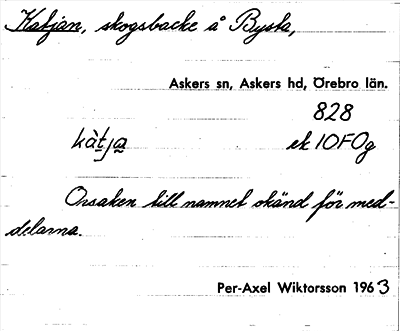 Katjan, skogsbacke å Bysta,
Askers sn, Askers hd, Örebro län.
828
kàtja ek 10F0g
Orsaken till namnet okänd för med-
delarna.
Per-Axel Wiktorsson 1963